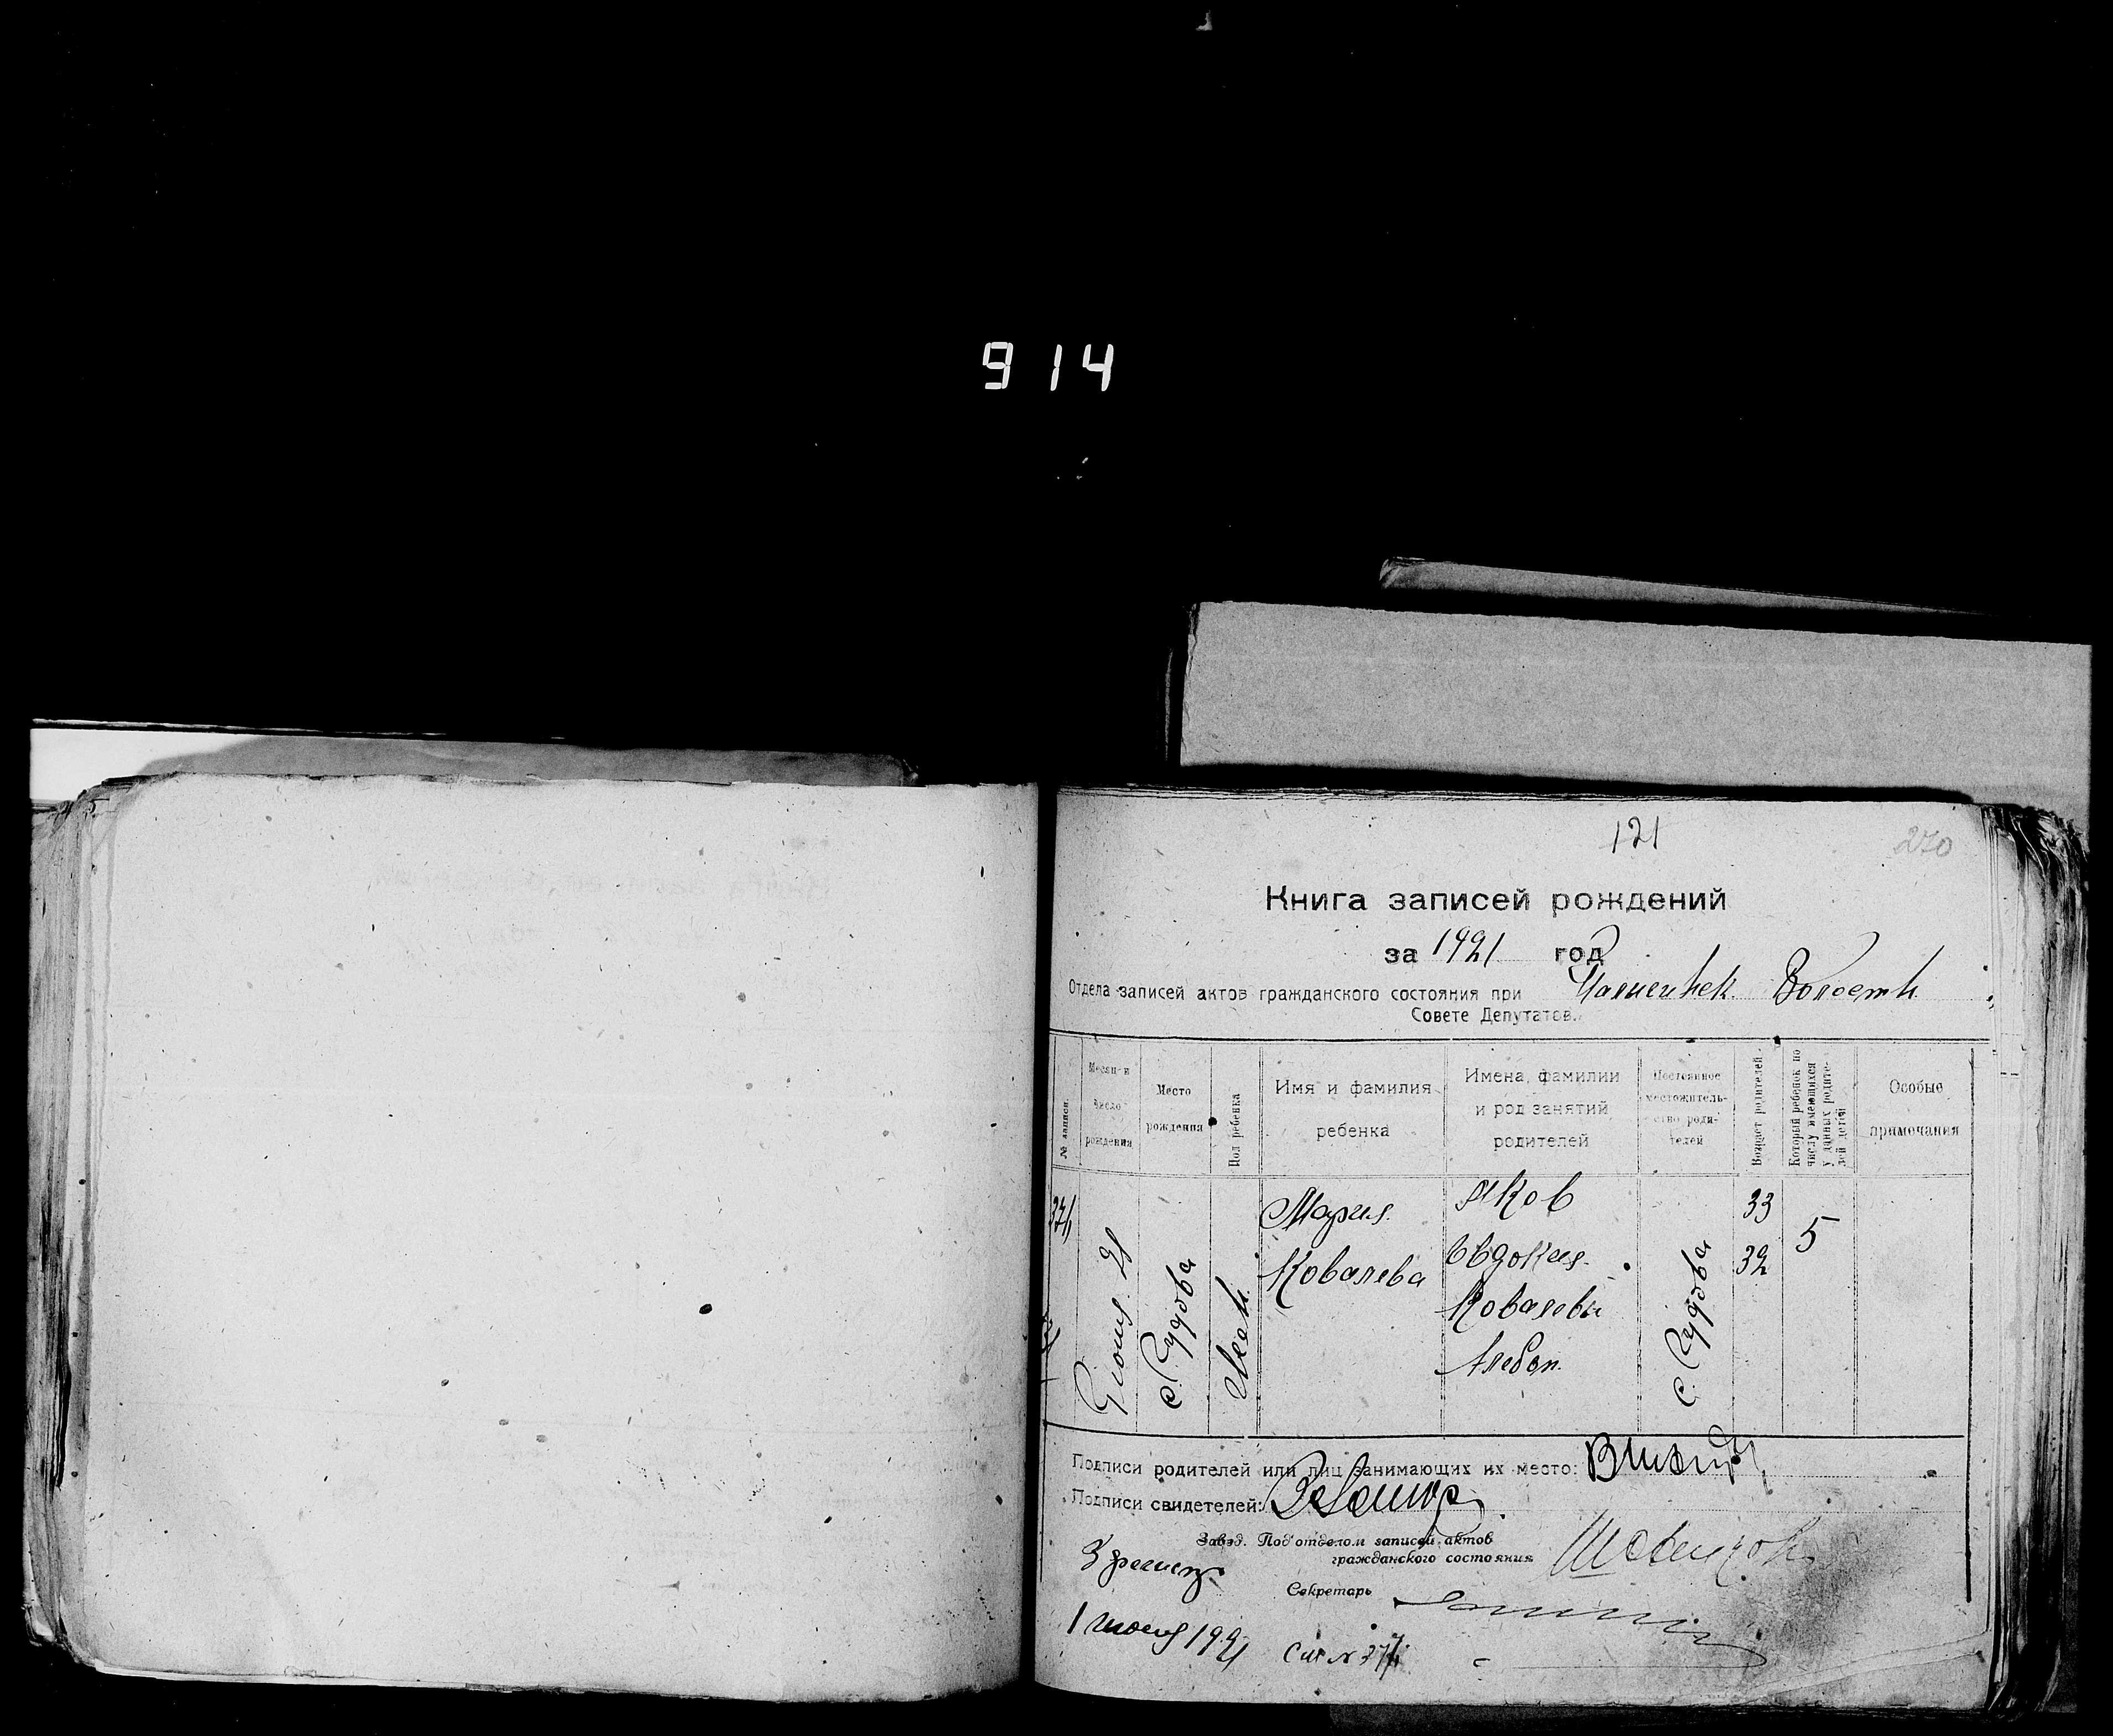 914
121
270
Книга записей рождений
за 1921 год
Отдела записей актов гражданского состояния при Волости
Совете Депутатов.
№ записи.
Месяц и число рождения
Место рождения
Пол ребенка
Имя и фамилия ребенка
Имена, фамилии и род занятий родителей
Постоянное местожительство родителей
Возраст родителей
Который ребенок по числу имеющихся у данных родителей детей
Особые примечания
28
с. Рудова
Женск.
Мария
Ковалева
Яков
Евдокия
Ковалевы
Хлебоп.
с. Рудова
33
32
5
Подписи родителей или лиц занимающих их место:
Подписи свидетелей:
Завед. Под'отделом записей актов
гражданского состояния
Секретарь
1 1921